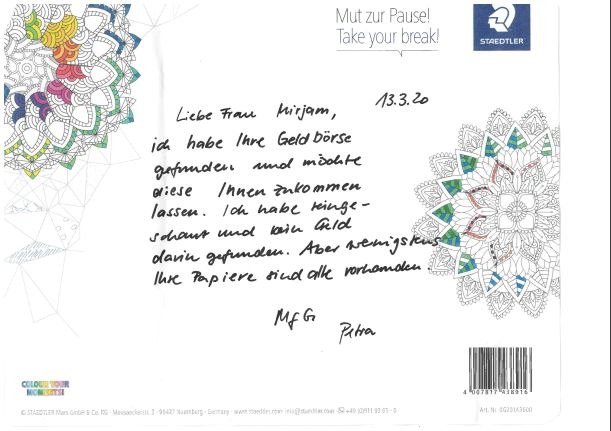 Mut zur Pause!
Take your break!
STAEDTLER
13.3.20
Liebe Frau Mirjam,
ich habe Ihre Geldbörse
gefunden und möchte
diese Ihnen zukommen
lassen. Ich habe reinge-
schaut und kein Geld
darin gefunden. Aber wenigstens
Ihre Papiere sind alle vorhanden.
MfG
Petra
COLOUR YOUR
MOMENTS!
4 007817 438916
© STAEDTLER Mars GmbH & Co. KG - Moosaeckerstr. 3 - 90427 Nuernberg - Germany - www.staedtler.com info@staedtler.com
Art. Nr.